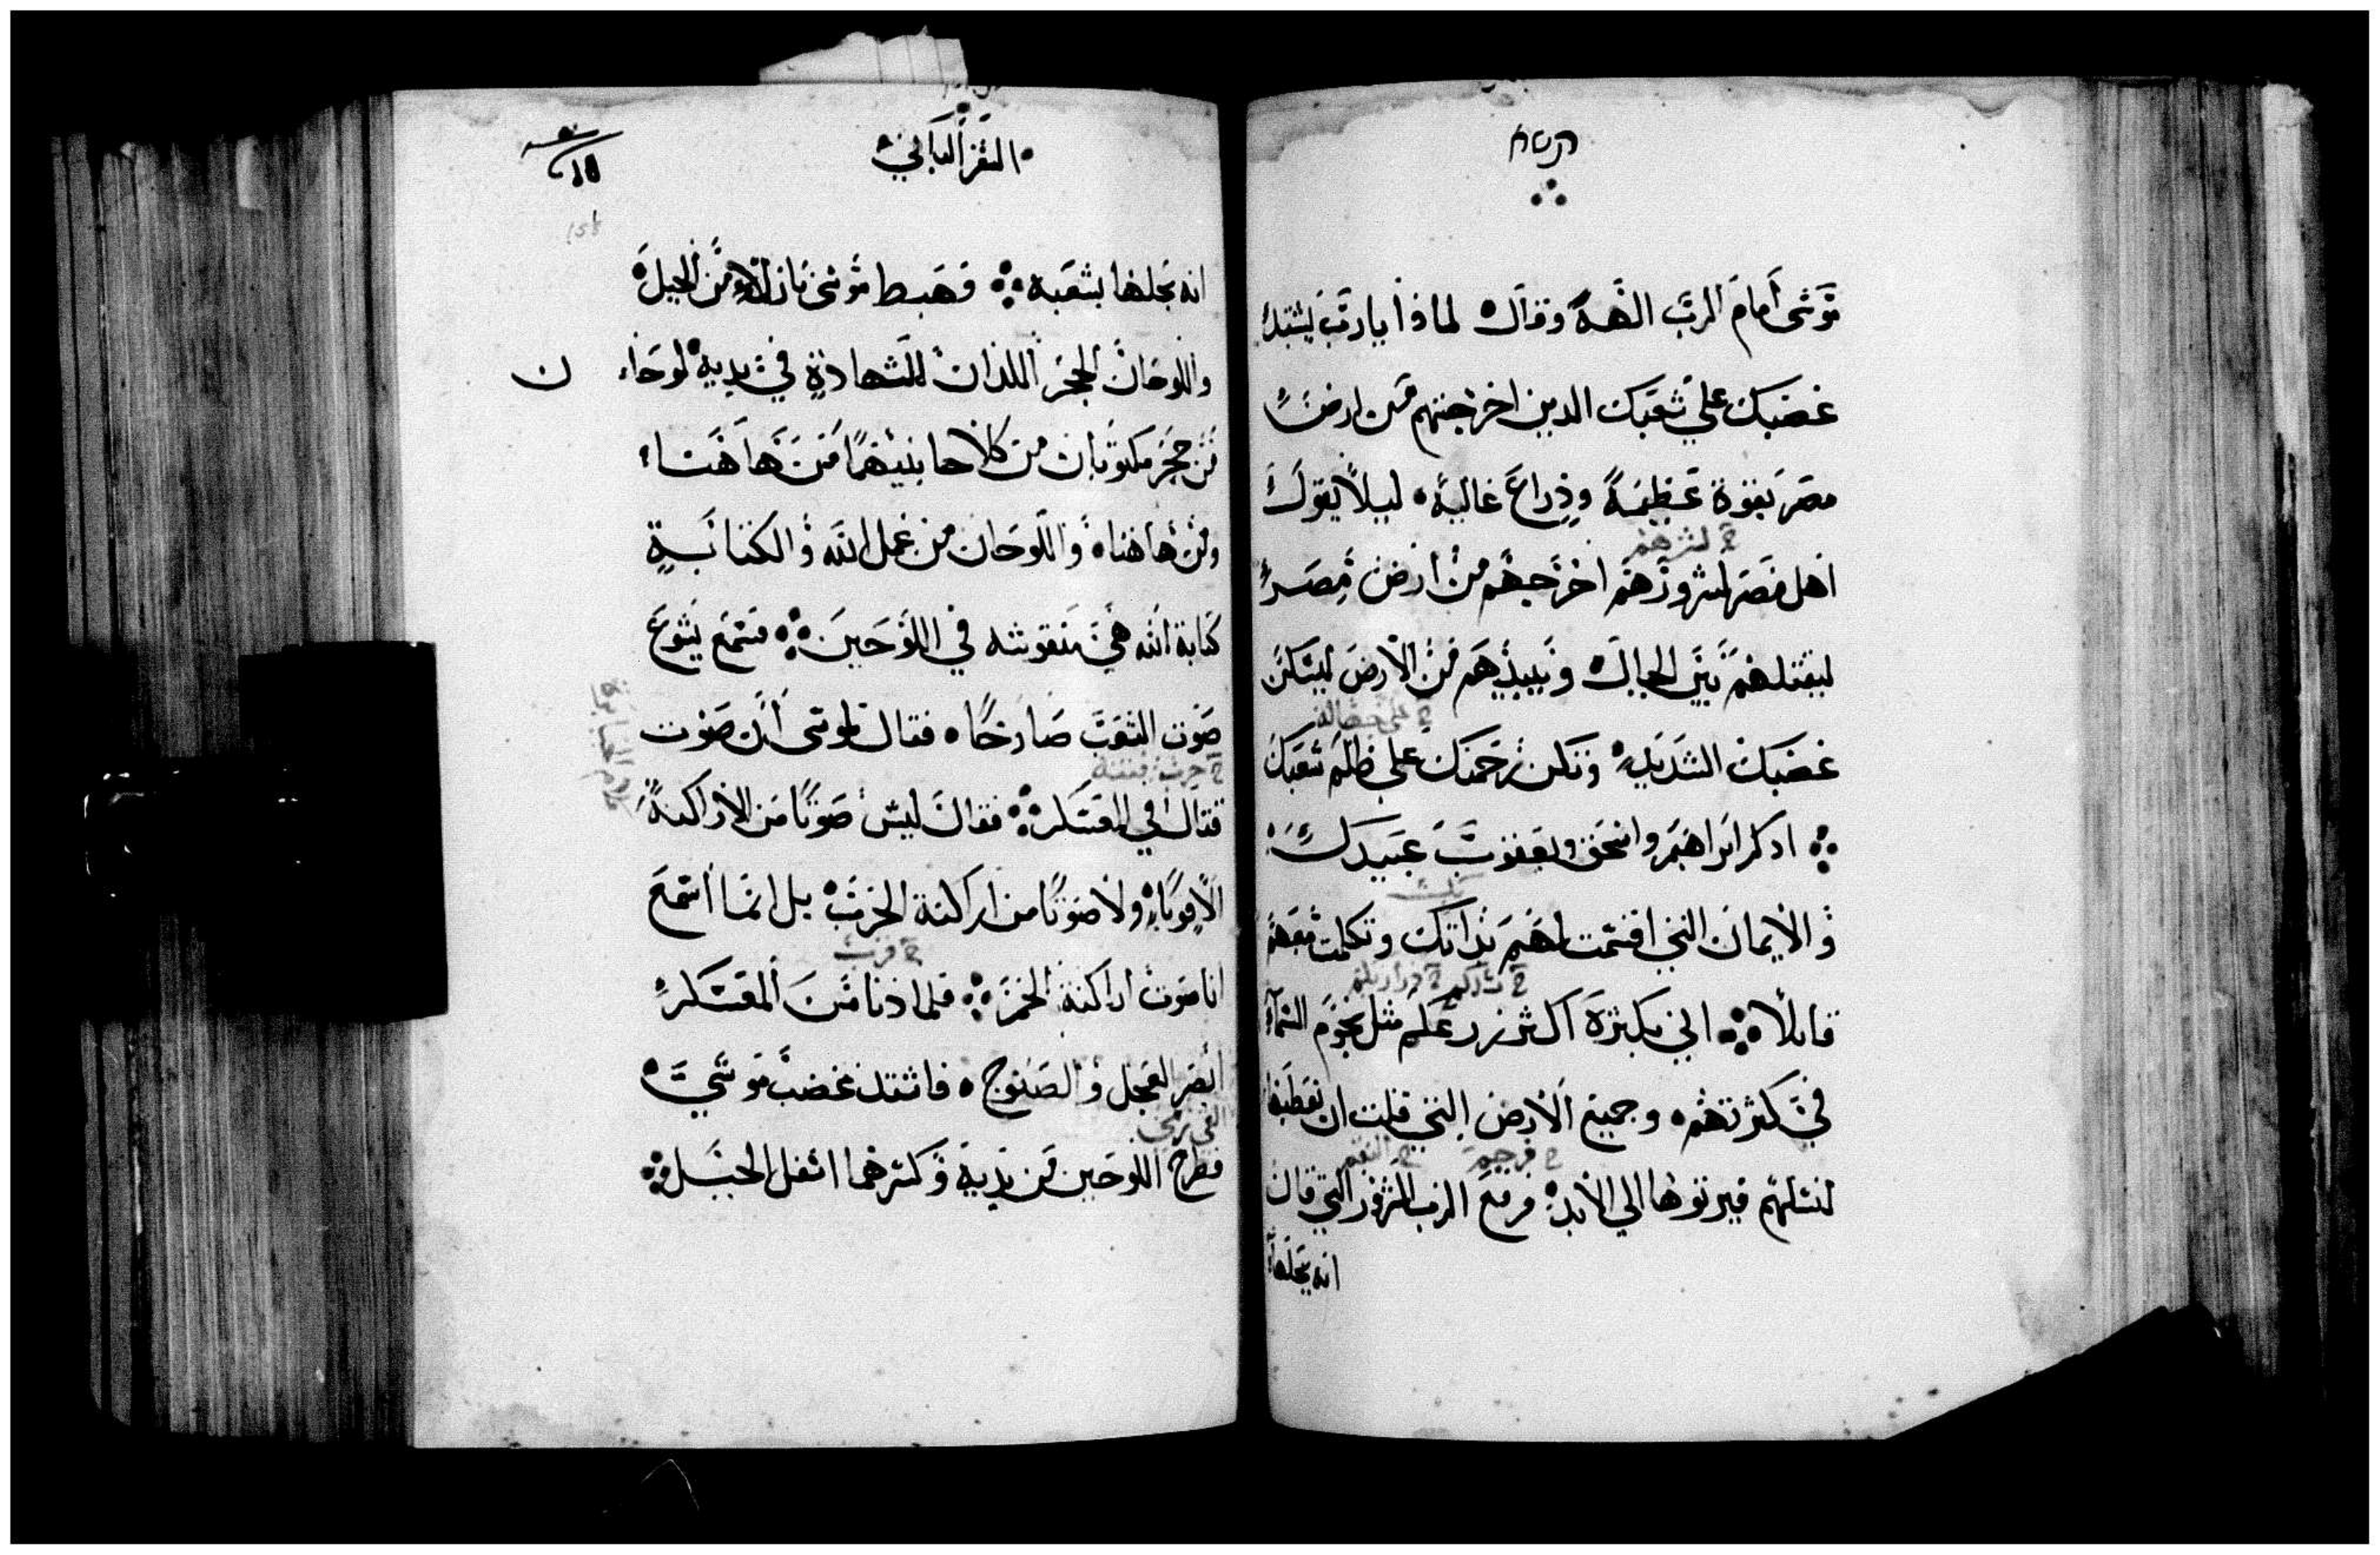 موسى أمام الرب الهه وقال لماذا يا رب يشتد
غضبك على شعبك الدين اخرجتهم من ارض
مصر بقوة عظيمة وذراع عالية ليلا يقول
ح لشرهم
اهل مصر لشرورهم اخرجهم من أرض مصر
ليقتلهم بين الجبال ويبيدهم من الأرض ليسكن
غضبك الشديد وتكن رحمتك على ظلم شعبك
اذكر ابراهيم واسحق ويعقوب عبيدك
والأيمان التي اقسمت لهم بذاتك وتكلمت معهم
قائلا اني بكثرة اكثر زرعكم مثل نجوم السماء
في كثرتهم وجميع الأرض التي قلت ان نعطيها
لنسلهم فيرثوها الي الأبد فرفع الرب الشرور التي قال
انه يحلها
السفر الثاني
انه يحلها بشعبه فهبط موسى نازلا من الجبل
واللوحان الحجر اللذان للشهادة في يديه لوحا
ن
من حجر مكتوبان من كلا جانبيهما من هاهنا
ومن هاهنا واللوحان من عمل الله والكتابة
كتابة الله هي منقوشه في اللوحين فسمع يشوع
صوت الشعب صارخا فقال لموسى أن صوت
قتال في المعسكر فقال ليس صوتا من الأراكنة
الأقوياء ولا صوتا من اراكنة الحرب بل انما أسمع
ح قرب
انا صوت اراكنة الخمر فلما دنا من المعسكر
أبصر العجل والصنوج فاشتد غضب موسي
فطرح اللوحين من يديه وكسرهما اسفل الجبل